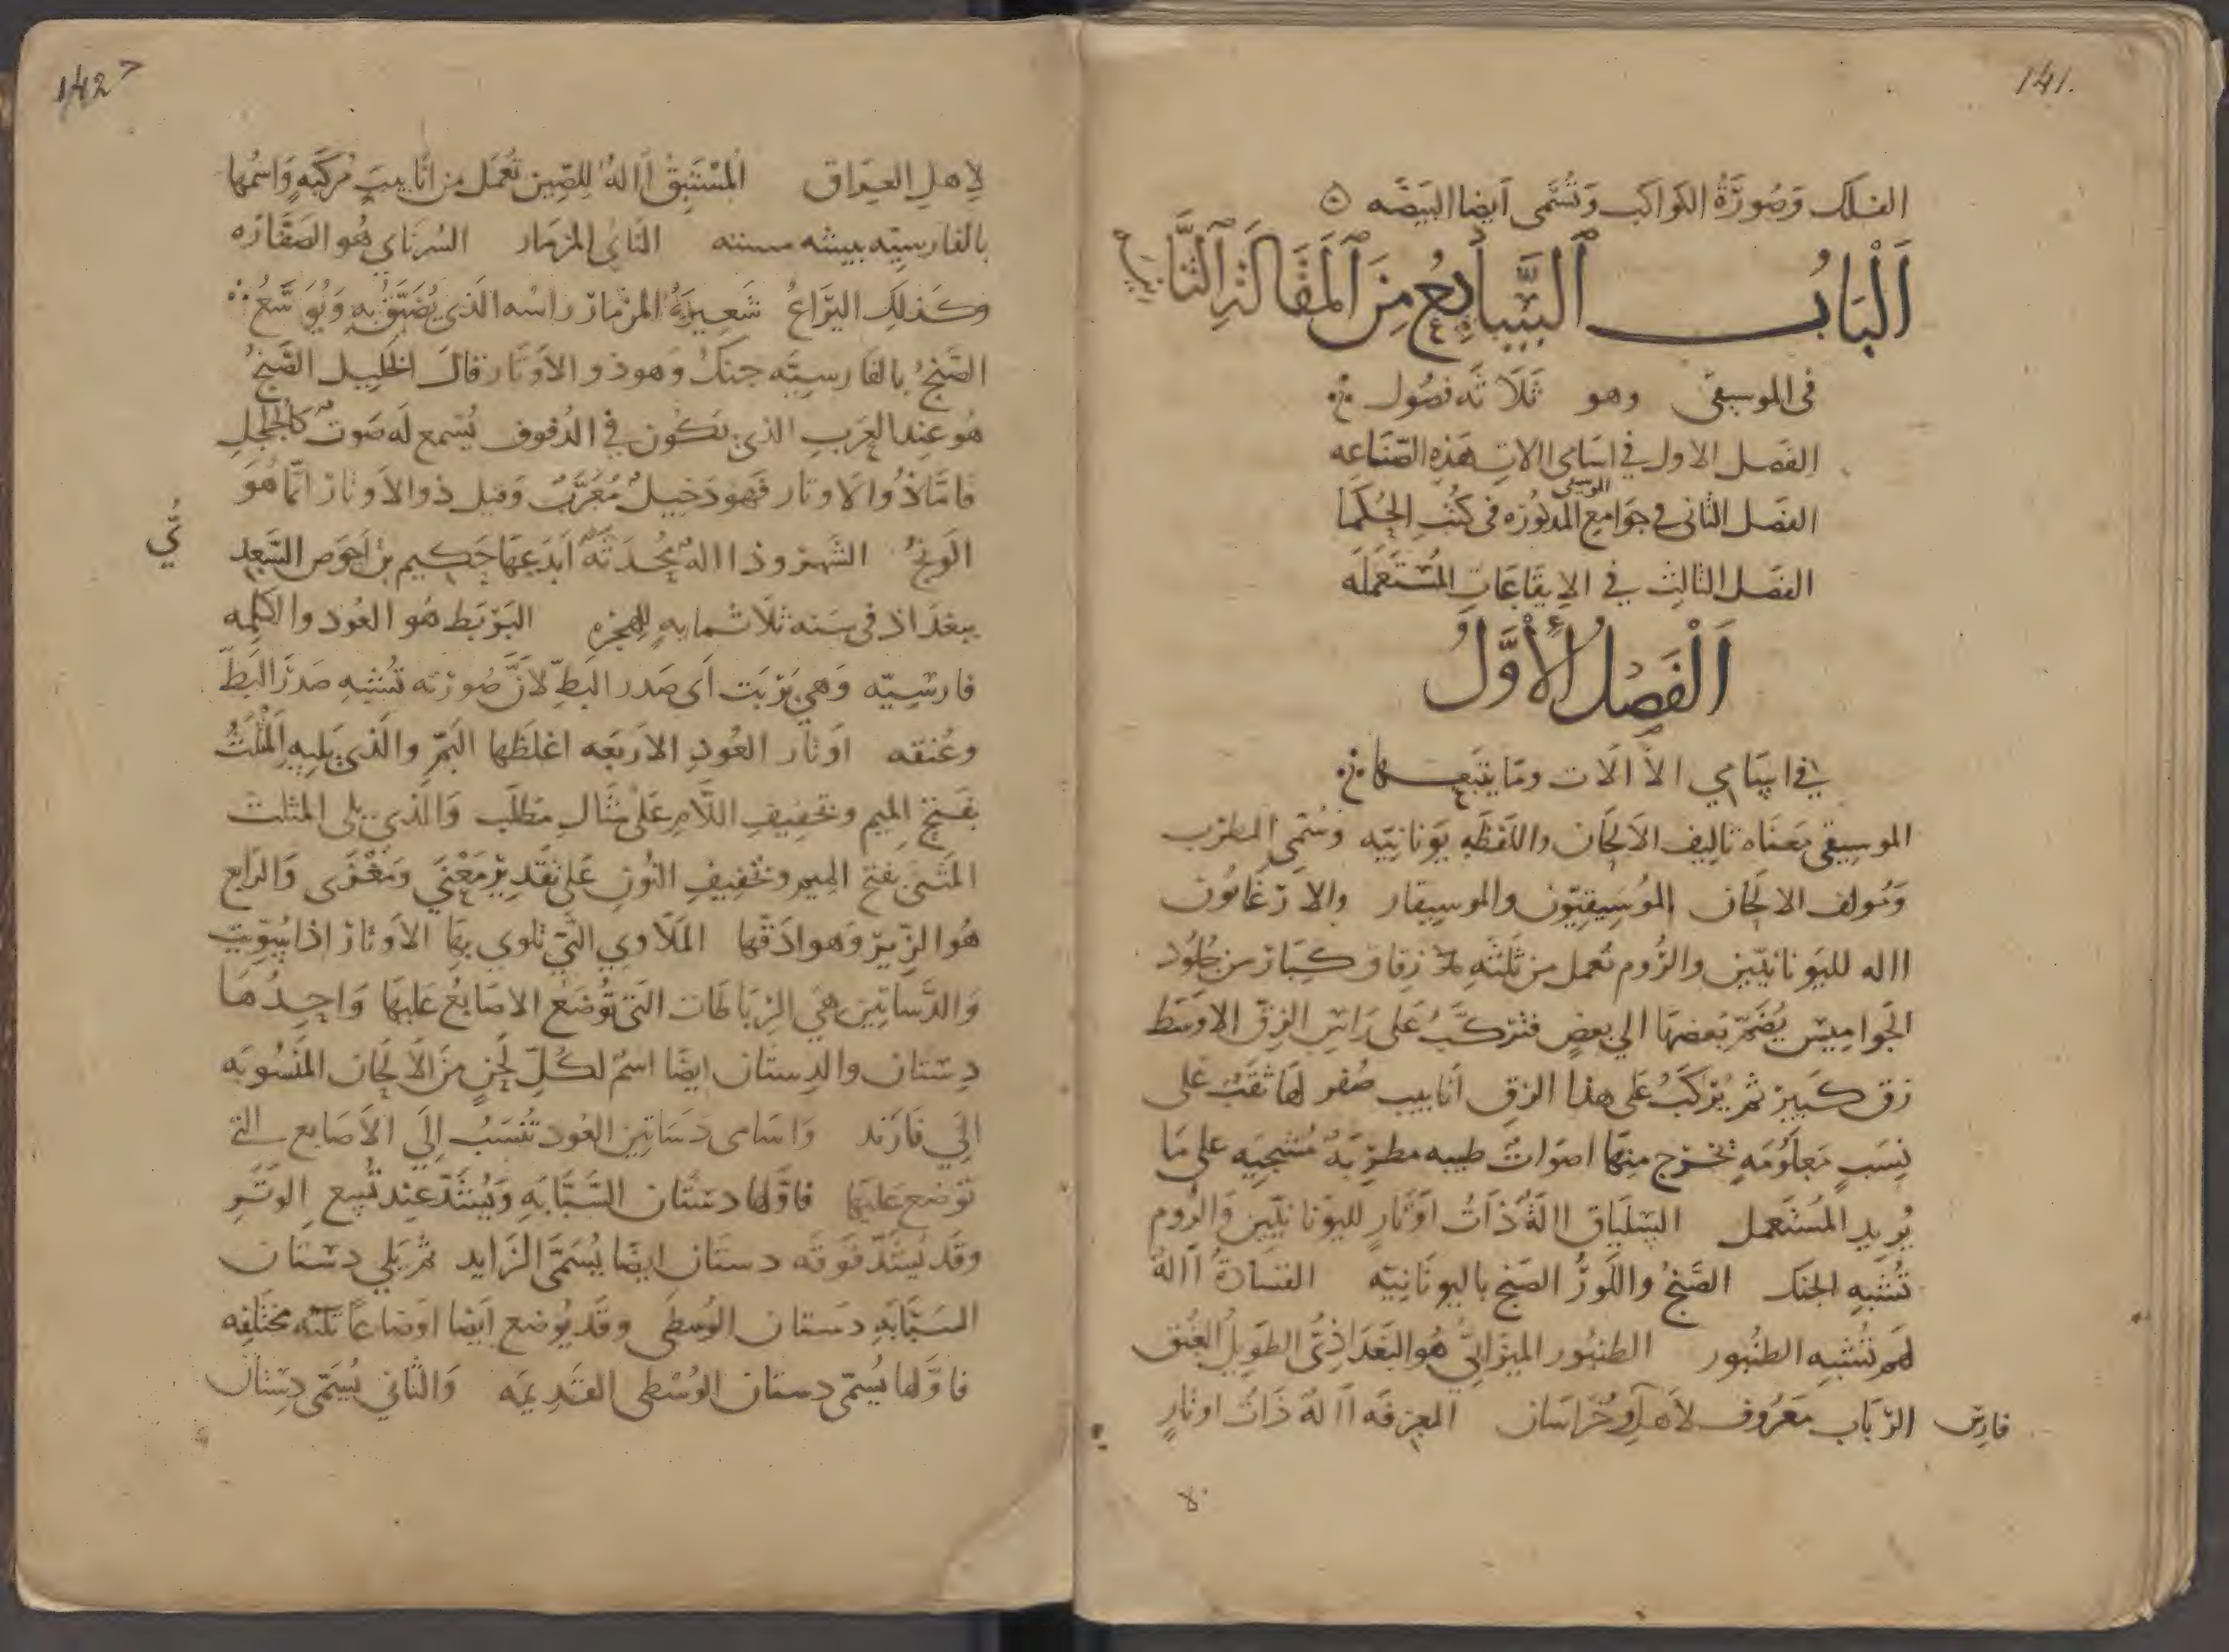 141.
الفلك وَصُورَةُ الكواكب وَتُسَمى أيضا البَيضَه
اَلْبَابُ السَّابِعُ مِنَ اَلْمَقَالَةِ الثَّانِيَةِ
فى الموسيقى وهو ثَلَاثَه فصُول
الفصَل الاول في اسَامى الات هَذِه الصّنَاعه
الفصَل الثانى فى جوَامع الموسيقى المذكورَه فى كتُب الحُكمَا
الفصَل الثالِث في الإيقَاعَاتِ المُسْتَعمَلَه
اَلْفَصْلُ اْلأَوَّلُ
في اسَامِي الاالَات ومَا يتبَعهَا
الموسِيقى مَعنَاه تاليف الاَلحَان واللَفظَه يَونانِيّه وسُمّي المطرب
وَمُولف الالحَان المُوسِيقيّون والموسِيقار والارغَانون
االه لليَونانيّين والرُوم تعمل من ثلثَه زقاق كبَار من جُلُود
الجَوامِيس يُضَمّ بَعضهَا الي بعضٍ فتركّبُ عَلى رَاسِ الزقّ الاوسَط
زق كَبير ثم يُركَبُ عَلى هذا الزقِ انَابيب صُفر لهَا ثقَب على
نِسَبٍ مَعلُومَهٍ تخرج منهَا اصوَاتٌ طيبه مطرِبَهٌ مُشجيَه على مَا
يُريد المُستَعمل السِلياق االَةٌ ذَاتُ اَوتَارٍ لليَونانيّين وَالرُوم
تُشبِه الجنك الصَنجُ واللَورُ الصَنج باليونَانِيّه القيثارةُ االةٌ
لهم تُشبِه الطنبُور الطنبُور الميزَانيُّ هُو البَغدَاذِيُّ الطَويل العُنق
الرّبَاب مَعرُوف لاَهلِ وخُرَاسَان المعزفَه االهٌ ذَاتُ اوتَارٍ
فارِس
142
لِاهلِ العِرَاق المُسْتَبِقُ االهٌ للِصِّين تُعْمَل من انَابيبَ مُركَّبَهٍ وَاسْمُها
بالفارسِيّه بيشه مسته النَاى المزمَار السُرنَاي هُو الصَفّارَه
وكَذلِكَ اليَرَاعُ شَعِيرَةُ المزمَار راسُه الذَى يُضَيَّقُ به وَيُوَسَّعُ
الصَنجُ بالفَارسِيَّه جنكٌ وَهوذو الاَوتَار قالَ الخَلِيل الصَنجُ
هُو عِندَ العَرَب الذي يَكُون في الدُفوف يُسمع لَه صَوتٌ كَالجُلجُلِ
فامَّا ذُو الاَوتار فَهو دَخِيلٌ مُعَرَّبٌ وَقيل ذو الاَوتار انّمَا هُوَ
الوَنجُ الشَهرُوذ االهٌ مُحدَثَةٌ اَبدَعهَا حَكِيم بن احوَص السُغدِ
يُّ
ببغدَاذ فى سَنه ثلَاثمايهٍ للهِجره البَرْبَط هُو العُود والكلِمه
فارسِيّه وَهي بَرْبَت اَى صَدر البَطّ لاَنَّ صُورَته تُشبِه صَدرَ البَطّ
وعُنقه اوتَار العُودِ الاَربَعه اغلَظها البَمّ والَذي يَليهِ المَثْلَثُ
بفَتح المِيم وتخفِيفِ اللَّام عَلى مثَالِ مَطلَب وَالَّذي يلى المثلث
المَثنى بفَتح المِيم وتخفيفِ النُون عَلى تقدِير مَعْنَي ومَغْزَى وَالرابع
هُو الزّيرُ وَهو ادَقّها المَلَاوي التي تلوي بهَا الاَوتَار اذا سُوِّيت
وَالدَّسَاتِين هَي الرّبَاطَات التَى تُوضَع الاصَابعُ عَليهَا وَاحِدُهَا
دِستَان والدِستَان ايضًا اسمٌ لكُلِّ لَحنٍ مِنَ الاَلحَان المَنسُوبَه
الَي فَارَبذ وَاسَامى دَسَاتِين العُود تُنسَبُ اِلَي الاَصَابع التي
تَوُضع عَليهَا فاوّلها دستَان السَّبَّابَهِ وَيُشَدّ عِند تُسع الوتَرِ
وقَد يُشَدّ فَوقَه دستَان ايضا يُسَمَّى الزَايد ثم يَلي دستَان
السَبَّابَه دَستان الوُسطَى وقَد يُوضع ايضا اوضَاعًا ثلثه مختَلِفه
فاوَّلها يُسمّى دستان الوُسْطى القَدِيمَه وَالثاني يُسَمّى دِستَان